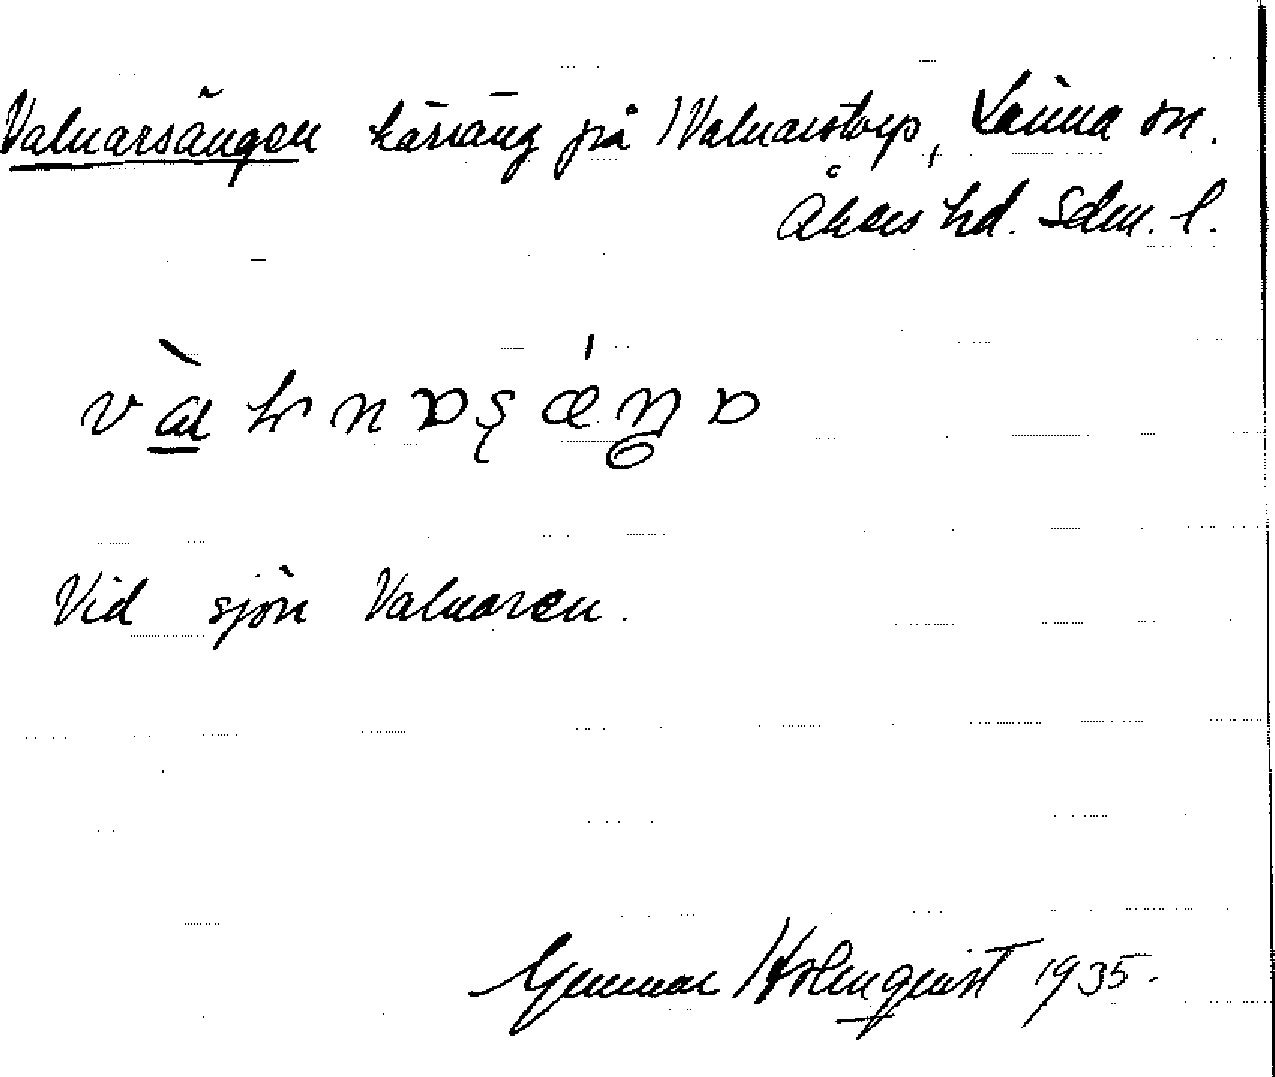 Valnarsängen kärräng på Valnarstorp, Länna sn.
Åkers hd. Sdm. l.
Vid sjön Valnaren.
Gunnar Holmquist 1935.